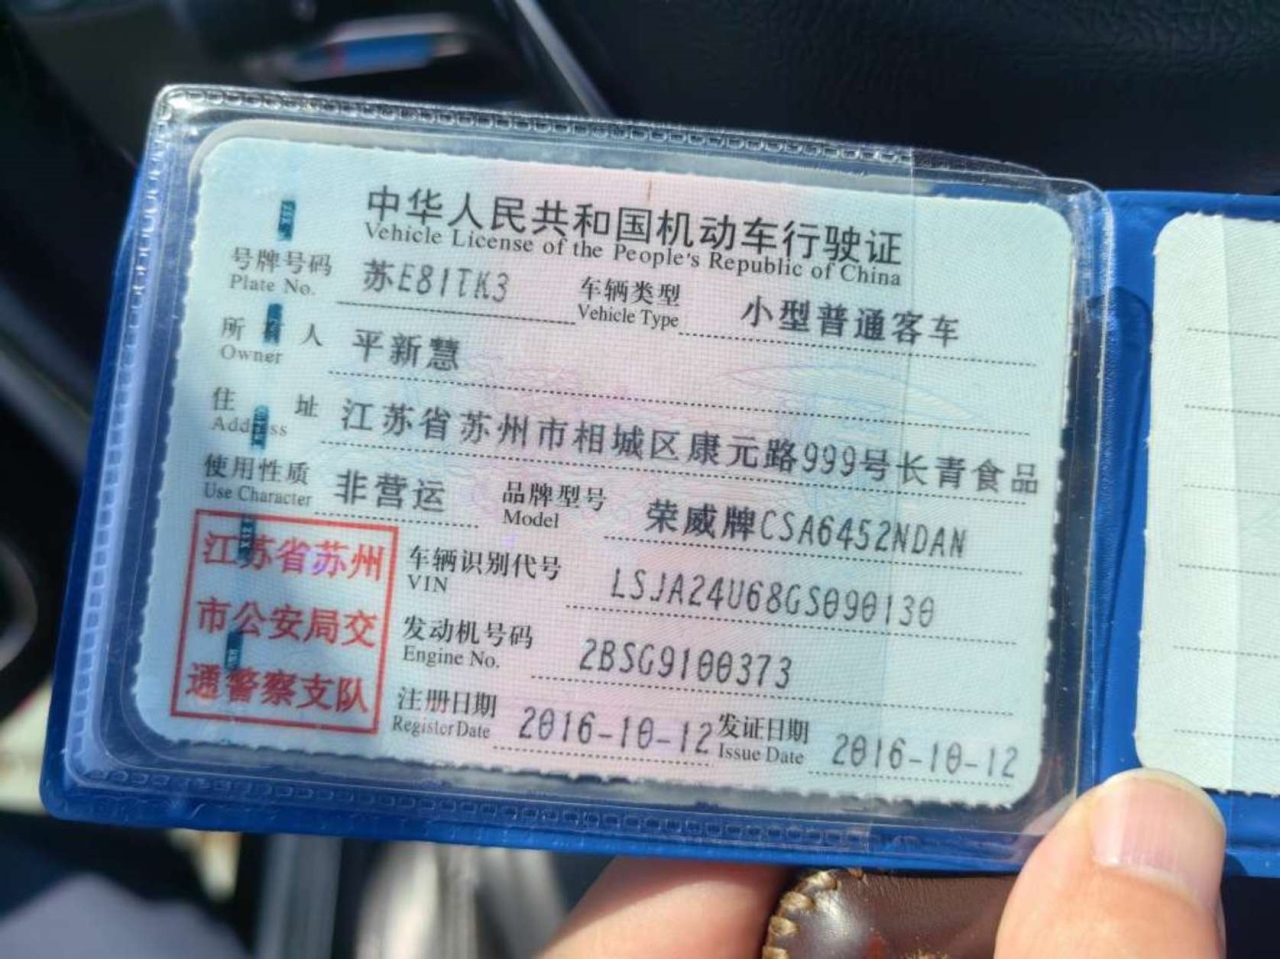 中华人民共和国机动车行驶证
Vehicle License of the People's Republic of China
号牌号码 苏E81TK3 车辆类型 小型普通客车
Plate No. Vehicle Type
所有人 平新慧
Owner
住址 江苏省苏州市相城区康元路999号长青食品
Address
使用性质 非营运 品牌型号 荣威牌CSA6452NDAN
Use Character Model
江苏省苏州
市公安局交
通警察支队
车辆识别代号 LSJA24U68GS090130
VIN
发动机号码 2BSG9100373
Engine No.
注册日期 2016-10-12 发证日期 2016-10-12
Register Date Issue Date